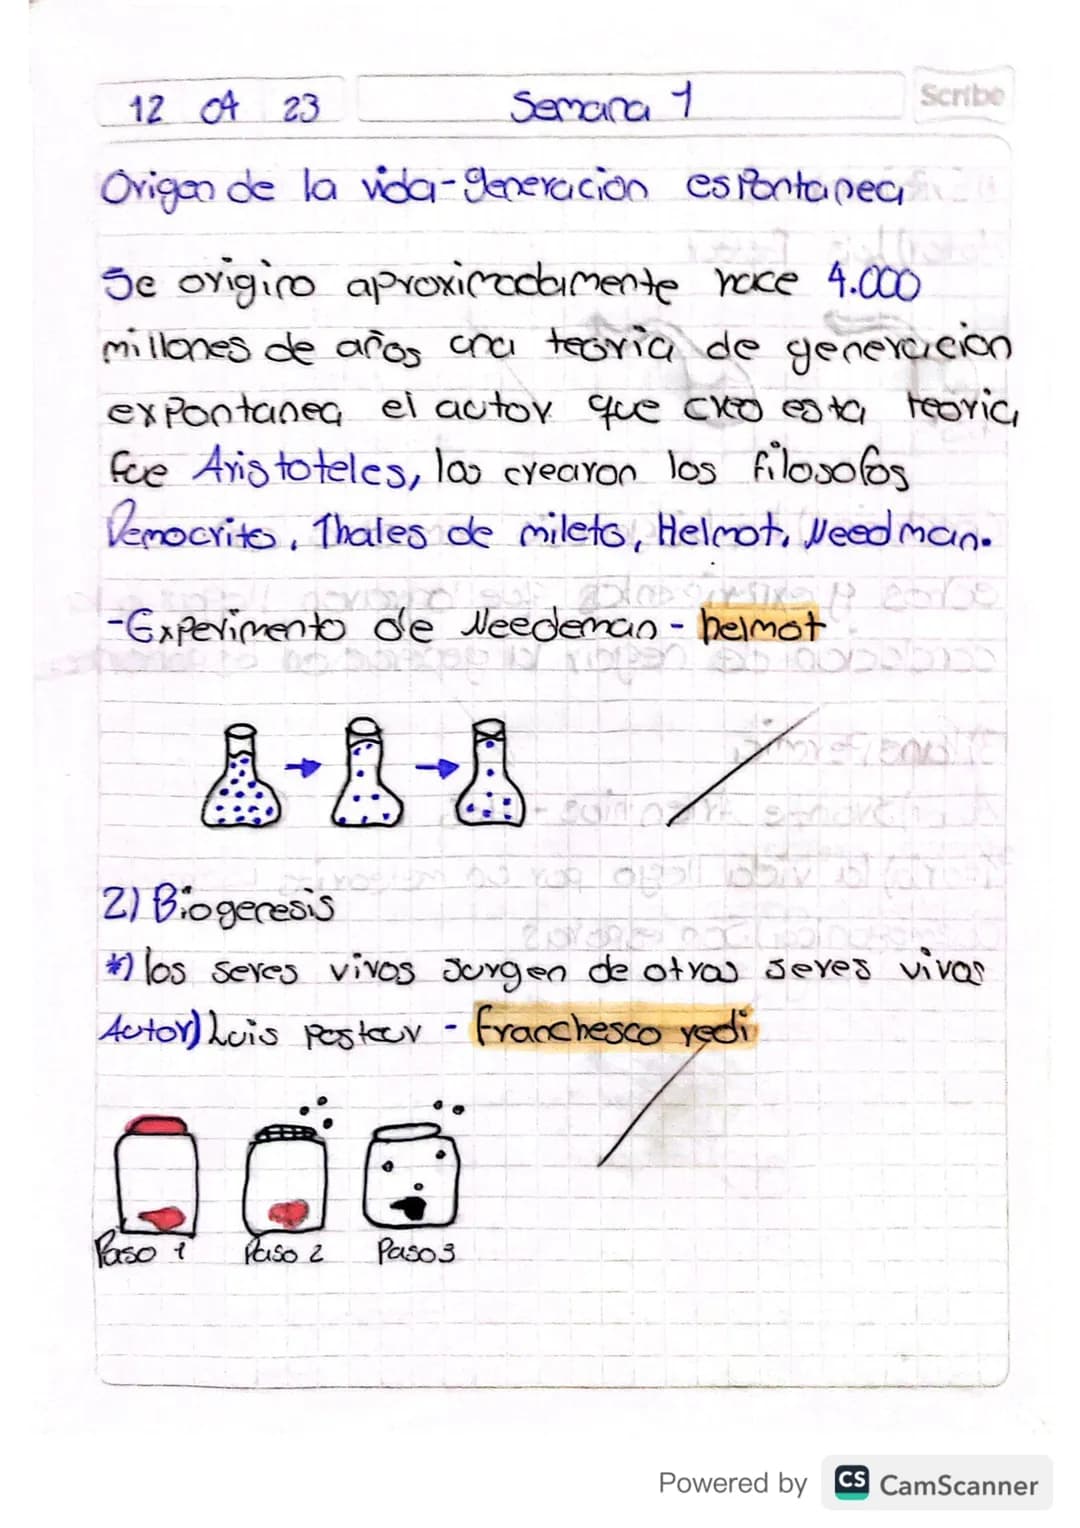 12 04 23
Semana 1
Scribe
Origen de la vida-generacion espontanea
Se origino aproximadamente hace 4.000
millones de años una teoria de generacion
expontanea el actor que creo esta teoria
fue Aristoteles, las crearon los filosofos
Democrito, Thales de mileto, Helmot, Needman.
-Experimento de Needeman - helmot
2) Biogenesis
*) los seres vivos surgen de otros seres vivos
Actor) Luis pasteur - franchesco redi
Paso 1 Paso 2 Paso 3
Powered by CS CamScanner